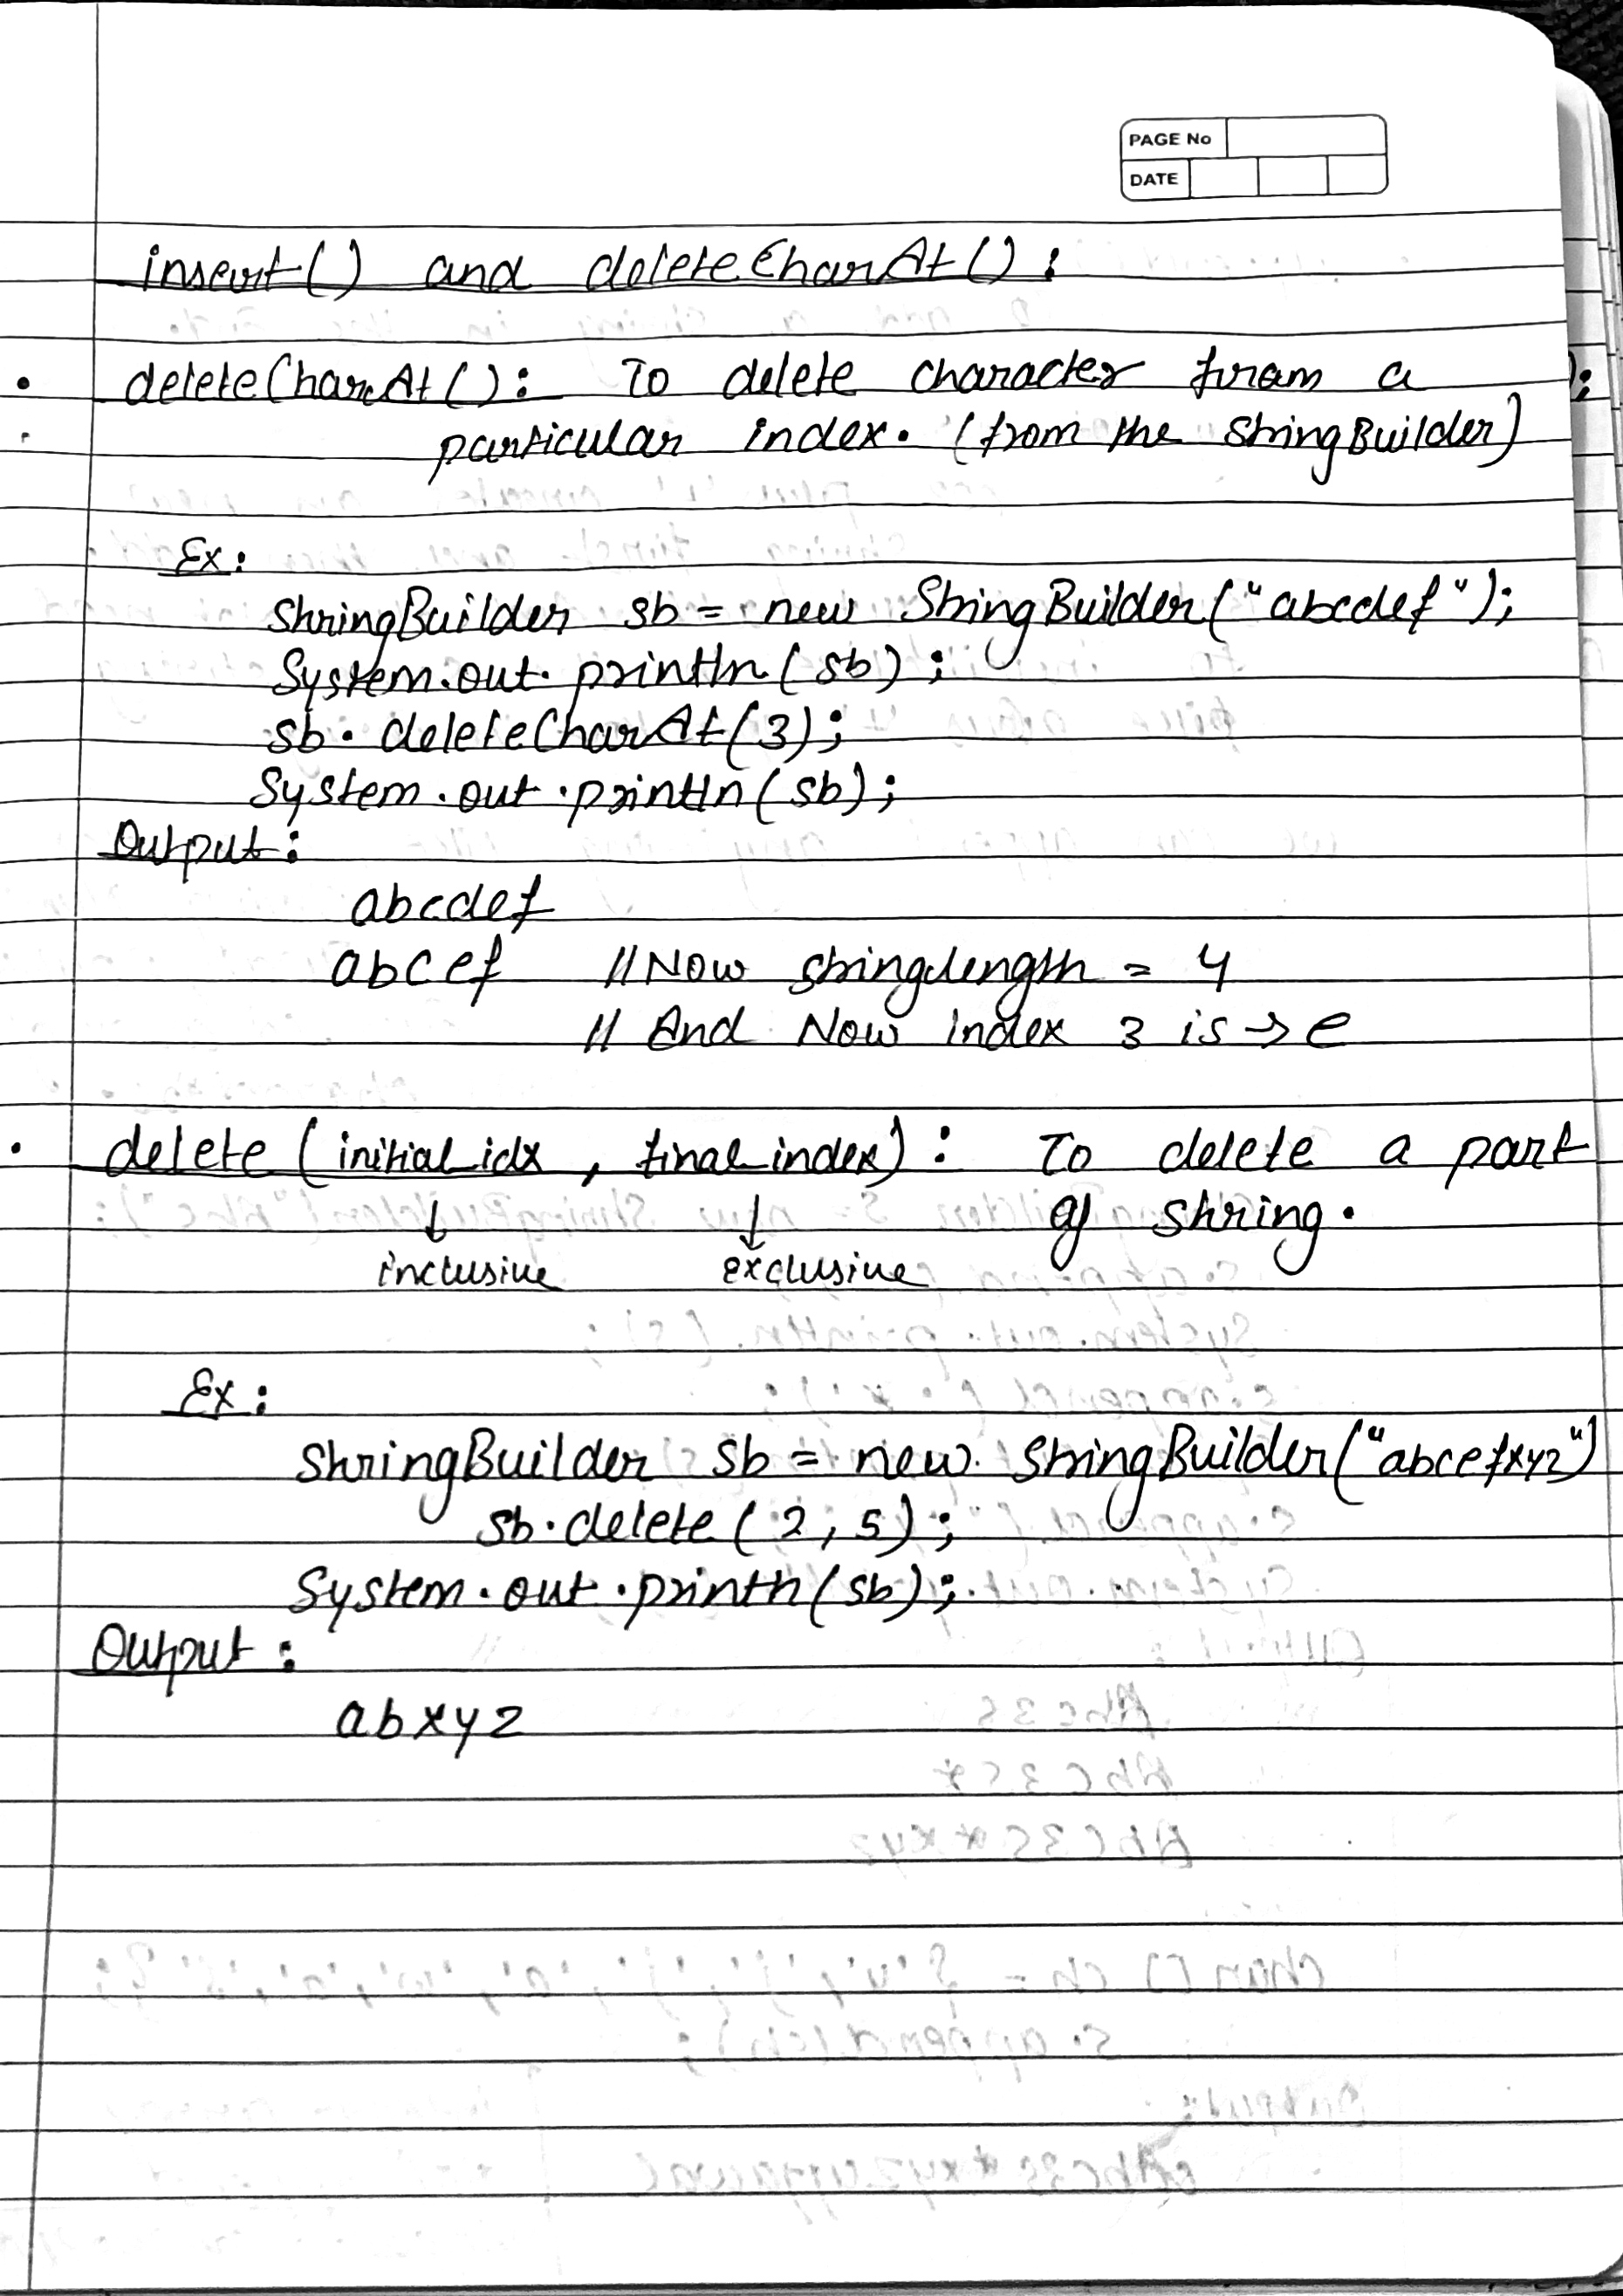 PAGE No
DATE
insert() and deleteCharAt() :
• deleteCharAt() : To delete character from a
particular index. (from the StringBuilder)
Ex :
StringBuilder sb = new StringBuilder("abcdef");
System.out.println(sb);
sb.deleteCharAt(3);
System.out.println(sb);
Output :
abcdef
abcef //Now string length = 4
// And Now index 3 is → e
• delete (initial idx , final index) : To delete a part
of string.
↓ ↓
inclusive exclusive
Ex :
StringBuilder sb = new StringBuilder("abcefxyz")
sb.delete(2, 5);
System.out.println(sb);
Output :
abxyz